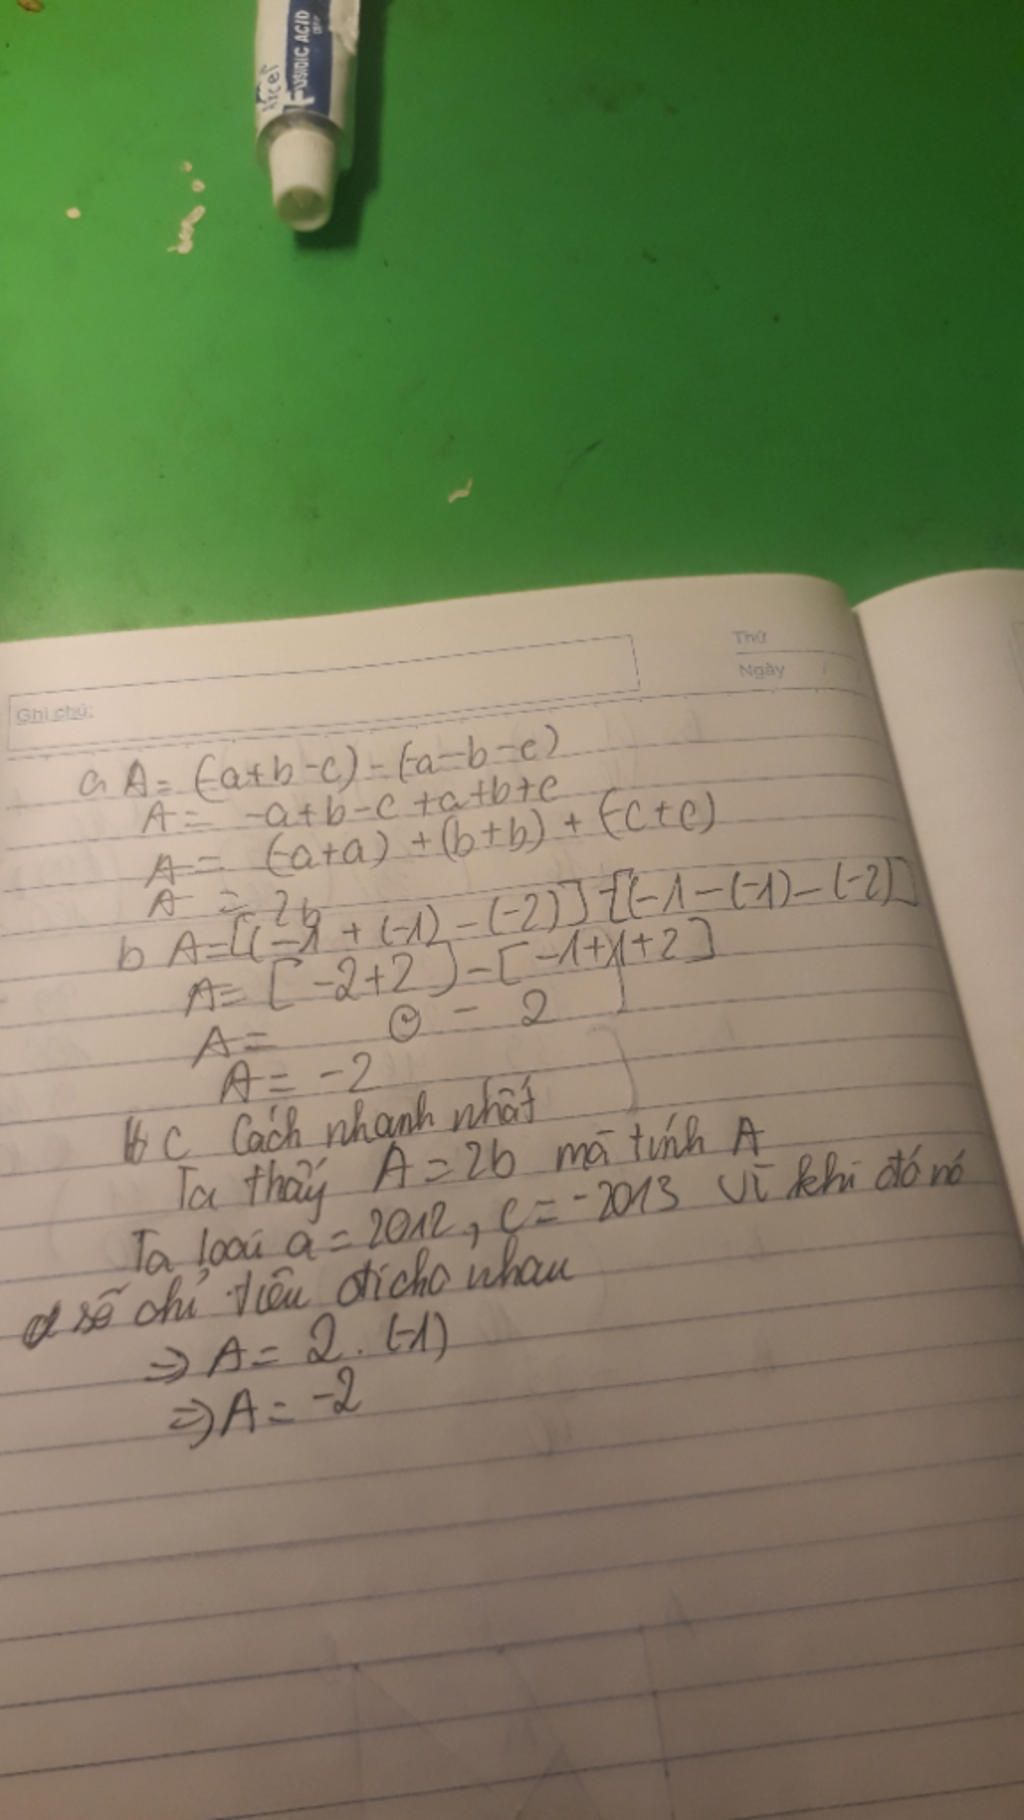 FUSIDIC ACID
Ghi chú:
Thứ
Ngày
a A = (-a+b-c) - (-a-b-c)
A = -a+b-c+a+b+c
A = (-a+a) + (b+b) + (-c+c)
A = 2b
b A=[(-1 + (-1) - (-2)] - [(-1 - (-1) - (-2)]
A= [-2+2] - [-1+1+2]
A= 0 - 2
A = -2
c Cách nhanh nhất
Ta thấy A = 2b mà tính A
Ta loại a = 2012, c = -2013 vì khi đó nó
sẽ chỉ tiêu đi cho nhau
=> A = 2. (-1)
=> A = -2